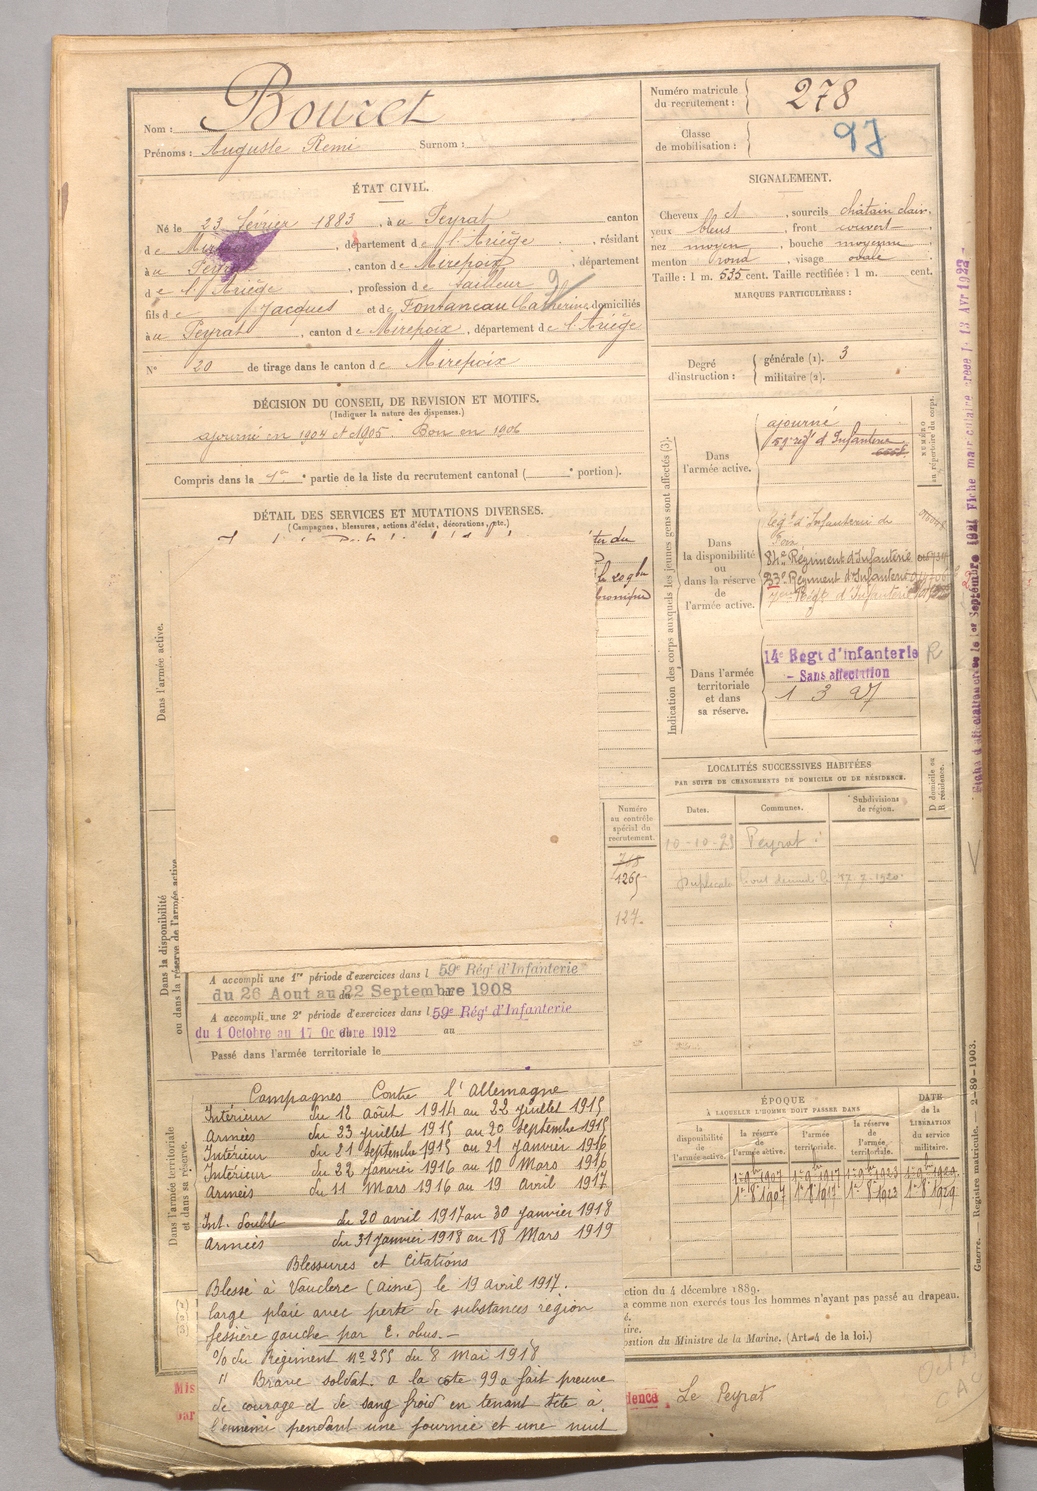 Nom : Bouret
Prénoms : Auguste Remi Surnom :
ÉTAT CIVIL.
Né le 23 février 1883, à u Peyrat canton
de , département de l'Ariège, résidant
à u , canton de Mirepoix, département
de l'Ariège, profession de tailleur
fils de Jacques et de Fontaneau Catherine domiciliés
à u Peyrat, canton de Mirepoix, département de l'Ariège
N° 20 de tirage dans le canton de Mirepoix
DÉCISION DU CONSEIL DE REVISION ET MOTIFS.
(Indiquer la nature des dispenses.)
ajourné en 1904 et 1905. Bon en 1906
Compris dans la partie de la liste du recrutement cantonal ( portion).
DÉTAIL DES SERVICES ET MUTATIONS DIVERSES.
(Campagnes, blessures, actions d'éclat, décorations, etc.)
Dans l'armée active.
Dans la disponibilité
ou dans la réserve de l'armée active
Numéro
au contrôle
spécial du
recrutement.
718
1265
127
A accompli une 1re période d'exercices dans l 59e Régt d'Infanterie
du 26 Aout au 22 Septembre 1908
A accompli une 2e période d'exercices dans l 59e Régt d'Infanterie
du 1 Octobre au 17 Octobre 1912 au
Passé dans l'armée territoriale le
Dans l'armée territoriale
et dans sa réserve.
Campagnes Contre l'Allemagne
Intérieur du 12 août 1914 au 22 juillet 1915
Armées du 23 juillet 1915 au 20 septembre 1915
Intérieur du 21 septembre 1915 au 21 janvier 1916
Intérieur du 22 janvier 1916 au 10 Mars 1916
Armées du 11 Mars 1916 au 19 Avril 1917
Int. double du 20 avril 1917 au 30 janvier 1918
Armées du 31 janvier 1918 au 18 Mars 1919
Blessures et Citations
Blessé à Vauclerc (Aisne) le 19 avril 1917.
large plaie avec perte de substances région
fessière gauche par E. obus. -
O/ du Régiment N° 255 du 8 Mai 1918
" Brave soldat. a la cote 99 a fait preuve
de courage et de sang froid en tenant tête à
l'ennemi pendant une journée et une nuit
Numéro matricule
du recrutement : 278
Classe
de mobilisation : 97
SIGNALEMENT.
Cheveux et, sourcils châtain clair.
yeux bleus, front couvert
nez moyen, bouche moyenne
menton rond, visage ovale
Taille : 1 m. 535 cent. Taille rectifiée : 1 m. cent.
MARQUES PARTICULIÈRES :
Degré
d'instruction :
générale (1). 3
militaire (2).
Indication des corps auxquels les jeunes gens sont affectés (3).
NUMÉRO
au répertoire du corps.
Dans
l'armée active.
ajourné
59e régt d'Infanterie
Dans
la disponibilité
ou
dans la réserve
de
l'armée active.
Régt d'Infanterie de
Foix
84e Régiment d'Infanterie
83e Régiment d'Infanterie
Régt d'Infanterie
Dans l'armée
territoriale
et dans
sa réserve.
14e Regt d'infanterie
- Sans affectation
1 3 27
R
LOCALITÉS SUCCESSIVES HABITÉES
PAR SUITE DE CHANGEMENTS DE DOMICILE OU DE RÉSIDENCE.
Dates. Communes. Subdivisions de région. D domicile ou R résidence.
10-10-23 Peyrat
Duplicata 1920
ÉPOQUE
À LAQUELLE L'HOMME DOIT PASSER DANS
la disponibilité de l'armée active. la réserve de l'armée active. l'armée territoriale. la réserve de l'armée territoriale.
DATE de la LIBÉRATION du service militaire.
1er 8 1907 1er 8 1917 1er 8 1923 1er 8 1929
ction du 4 décembre 1889.
a comme non exercés tous les hommes n'ayant pas passé au drapeau.
osition du Ministre de la Marine. (Art. 4 de la loi.)
dence Le Peyrat
Mis
par
Guerre. Registre matricule. 2-89-1903.